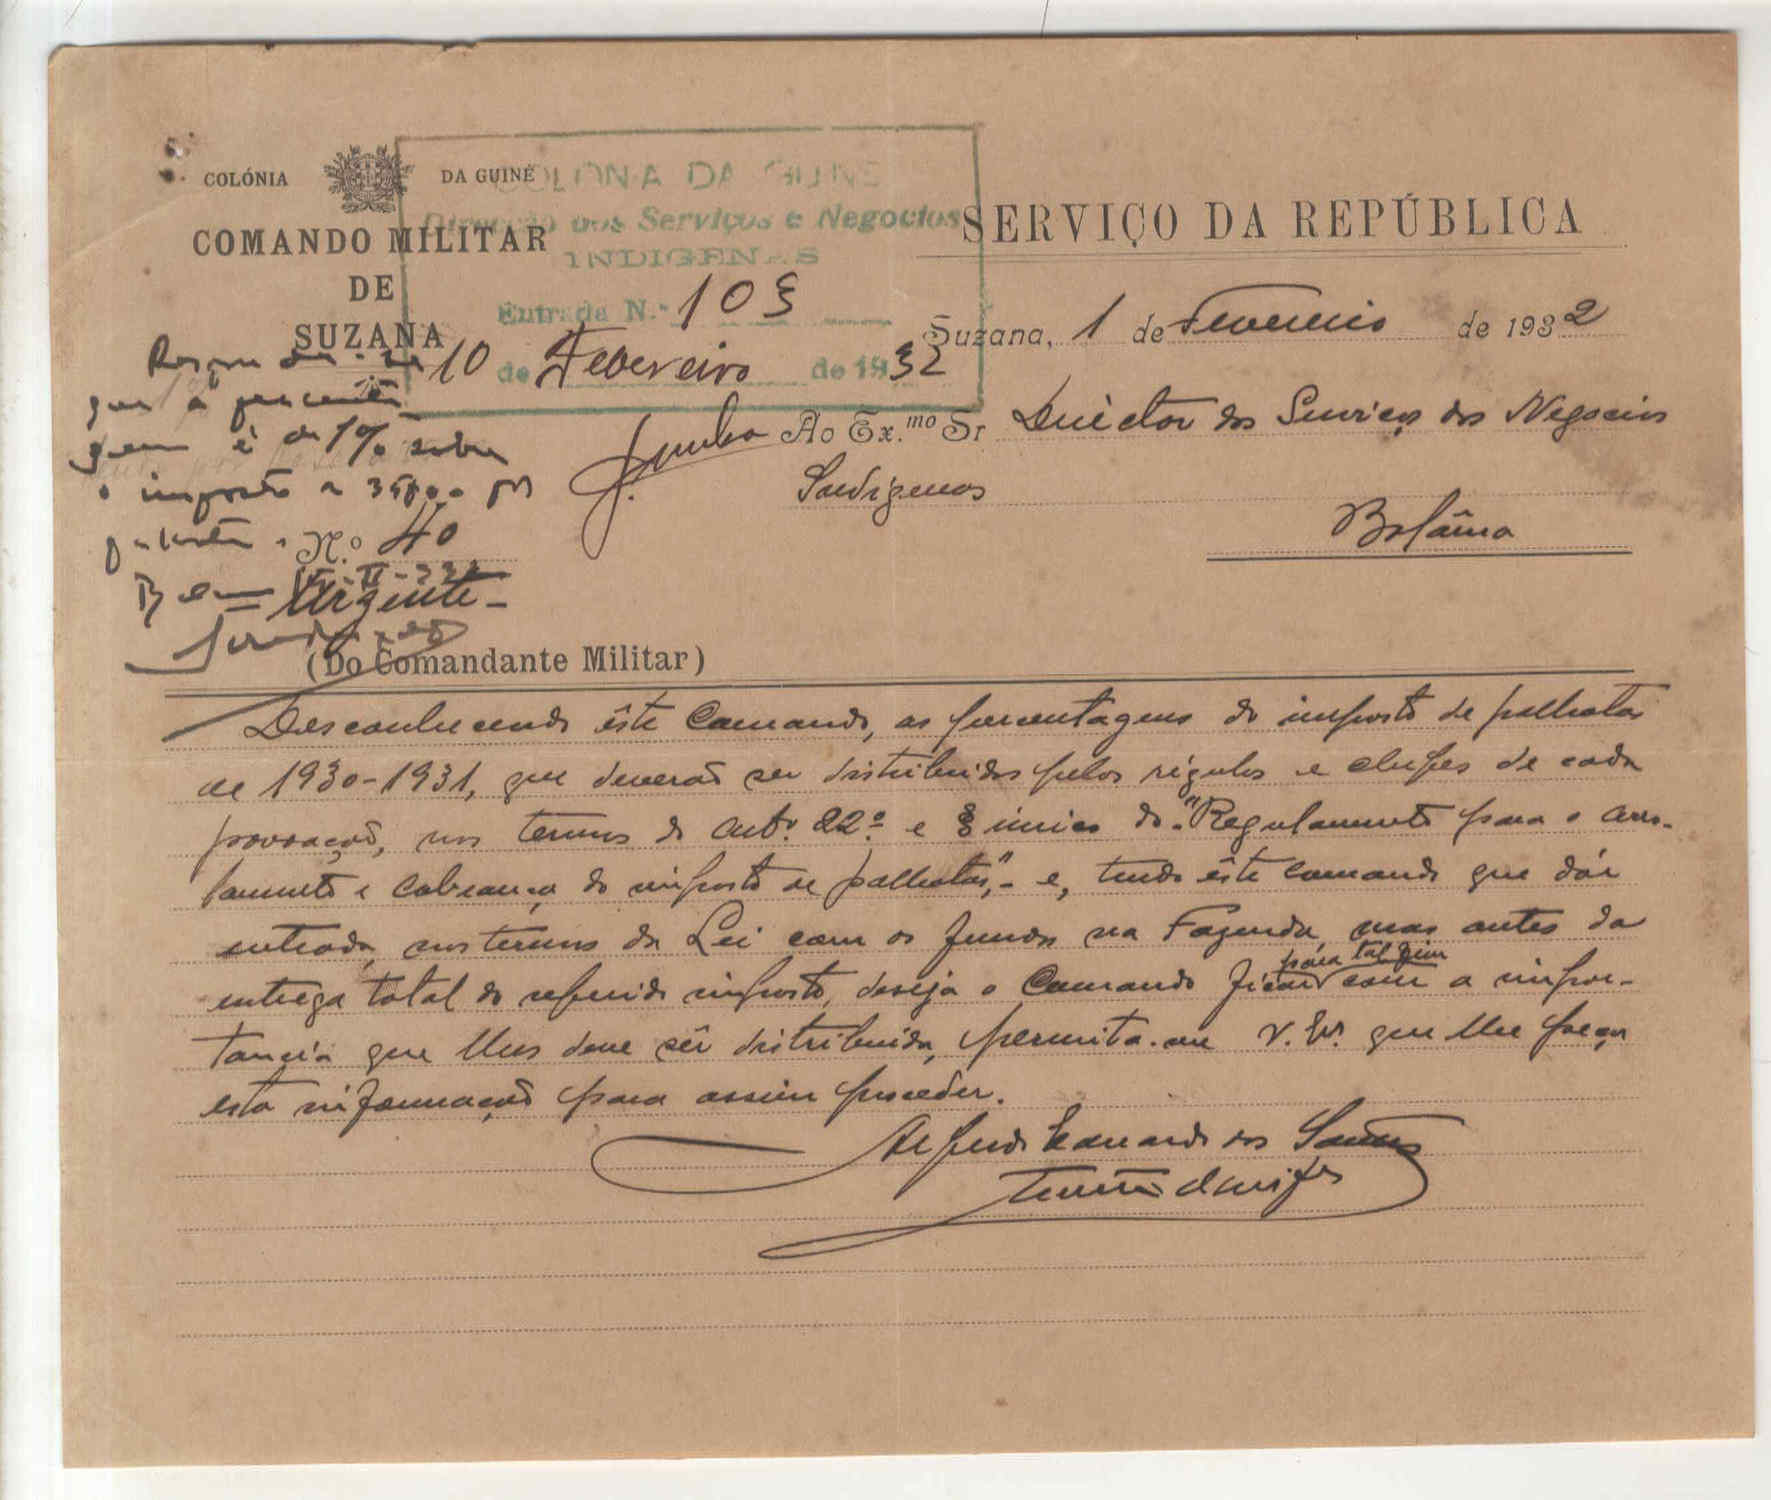 COLÓNIA DA GUINÉ
COMANDO MILITAR
DE
SUZANA
COLONIA DA GUINE
Direcção dos Serviços e Negocios
INDIGENAS
Entrada N.º 103
10 de Fevereiro de 1932
SERVIÇO DA REPÚBLICA
Suzana, 1 de Fevereiro de 1932
Ao Ex.mo Sr Director dos Serviços dos Negocios
Indigenas
Bolâma
que a percenta
gem é de 1% sobre
o imposto
N.º 40
Urgente-
(Do Comandante Militar)
Desconhecendo êste Comando, as percentagens do imposto de palhotas
de 1930-1931, que deverão ser distribuidas pelos régulos e chefes de cada
povoação, nos termos do artº 22º e § unico do "Regulamento para o arro-
lamento e cobrança do imposto de palhotas",- e, tendo êste comando que dár
entrada, nos termos da Lei com os fundos na Fazenda, mas antes da
entrega total do referido imposto, deseja o Comando ficar para tal fim com a impor-
tancia que lhes deve sêr distribuida, permita-me V. Exª. que lhe peça
esta informação para assim proceder.
Alfredo Eduardo dos Santos